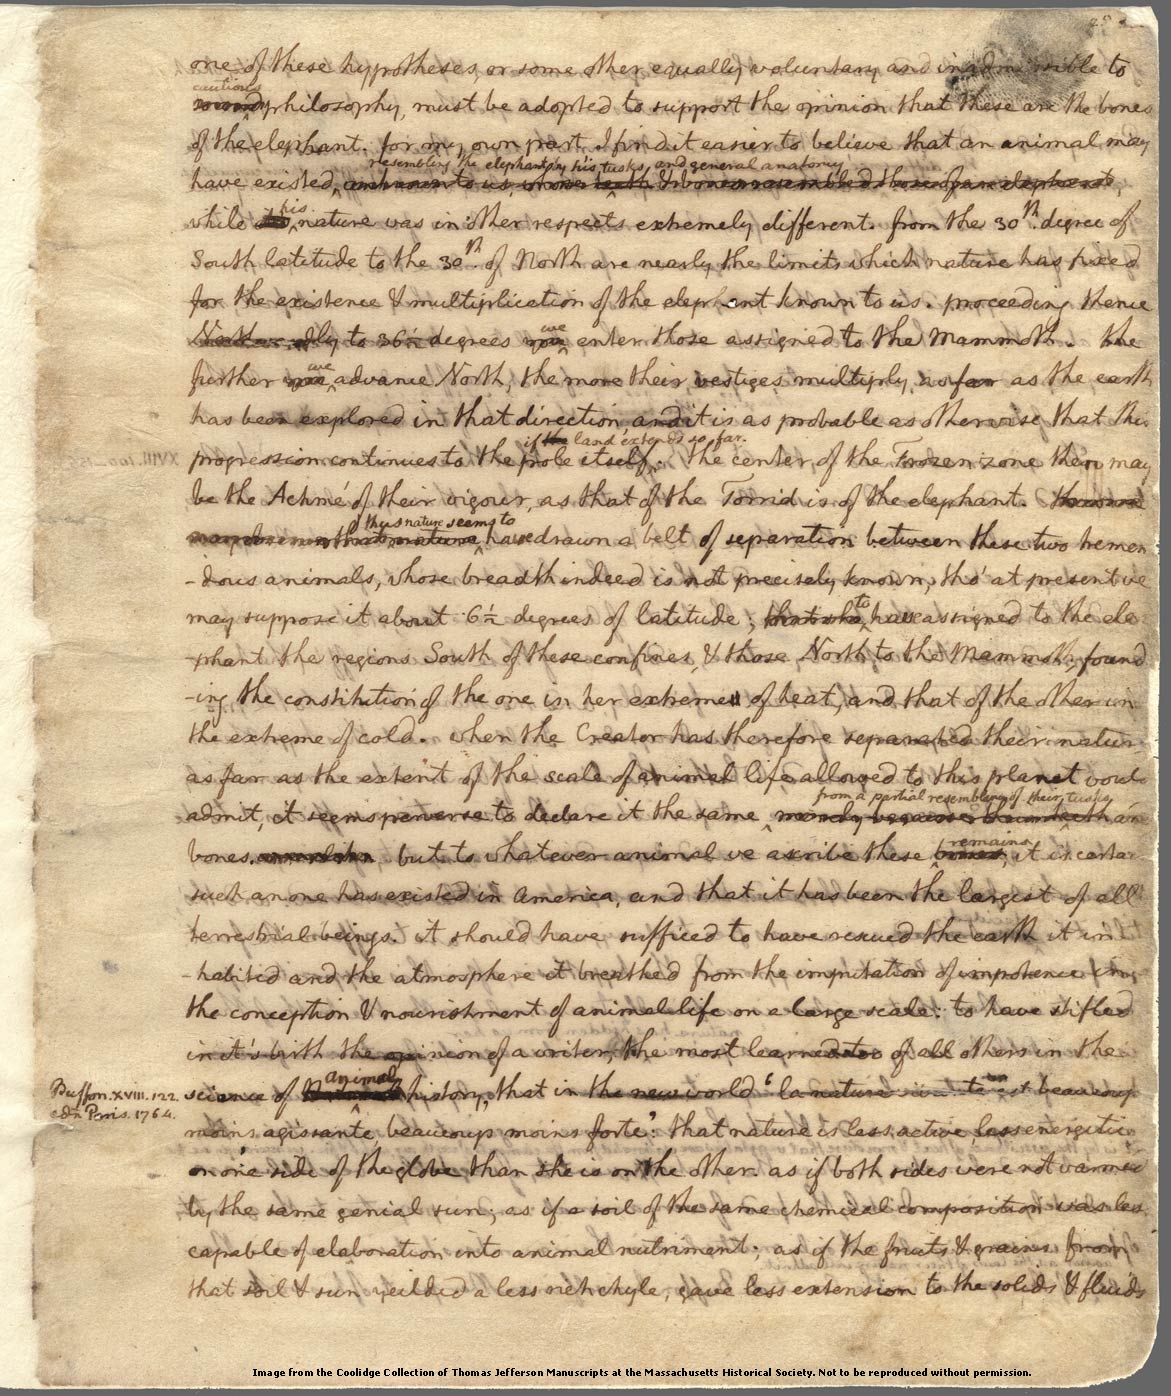 one of these hypotheses, or some other equally voluntary and inadmissible to
cautious
philosophy, must be adopted to support the opinion that these are the bones
of the elephant. for my own part I find it easier to believe that an animal may
resembling the elephant by his tusks, and general anatomy,
have existed, unknown to us, whose teeth & bones resembled those of an elephant,
his
while nature was in other respects extremely different. from the 30th. degree of
South latitude to the 30th. of North are nearly the limits which nature has fixed
for the existence & multiplication of the elephant known to us. proceeding thence
we
Northwardly to 36½ degrees you enter those assigned to the Mammoth. the
we
further you advance North, the more their vestiges multiply as far as the earth
has been explored in that direction, and it is as probable as otherwise that this
if the land extends so far.
progression continues to the pole itself. the center of the Frozen zone then may
be the Achmé of their vigour, as that of the Torrid is of the elephant.
thus nature seems to
have drawn a belt of separation between these two tremen
-dous animals, whose breadth indeed is not precisely known, tho' at present we
to
may suppose it about 6½ degrees of latitude; that she has assigned to the ele
-phant the regions South of these confines, & those North to the Mammoth, found
-ing the constitution of the one in her extreme of heat, and that of the other in
the extreme of cold. when the Creator has therefore separated their natur
as far as the extent of the scale of animal life allowed to this planet would
from a partial resemblance of their tusks
admit, it seems perverse to declare it the same, merely because
bones. but to whatever animal we ascribe these
remains
bones, it is certain
such an one has existed in America, and that it has been the largest of all
terrestrial beings. it should have sufficed to have rescued the earth it in
-habited and the atmosphere it breathed from the imputation of impotence in
the conception & nourishment of animal life on a large scale: to have stifled
in it's birth the opinion of a writer, the most learned of all others in the
animal
Buffon. XVIII. 122.
edn Paris. 1764.
science of history, that in the new world 'la nature vivante est beaucoup
moins agissante, beaucoup moins forte': that nature is less active, less energetic
on one side of the globe than she is on the other. as if both sides were not warmed
by the same genial sun; as if a soil of the same chemical composition was less
capable of elaboration into animal nutriment; as if the fruits & grains from
that soil & sun yeilded a less rich chyle, gave less extension to the solids & fluids
Image from the Coolidge Collection of Thomas Jefferson Manuscripts at the Massachusetts Historical Society. Not to be reproduced without permission.